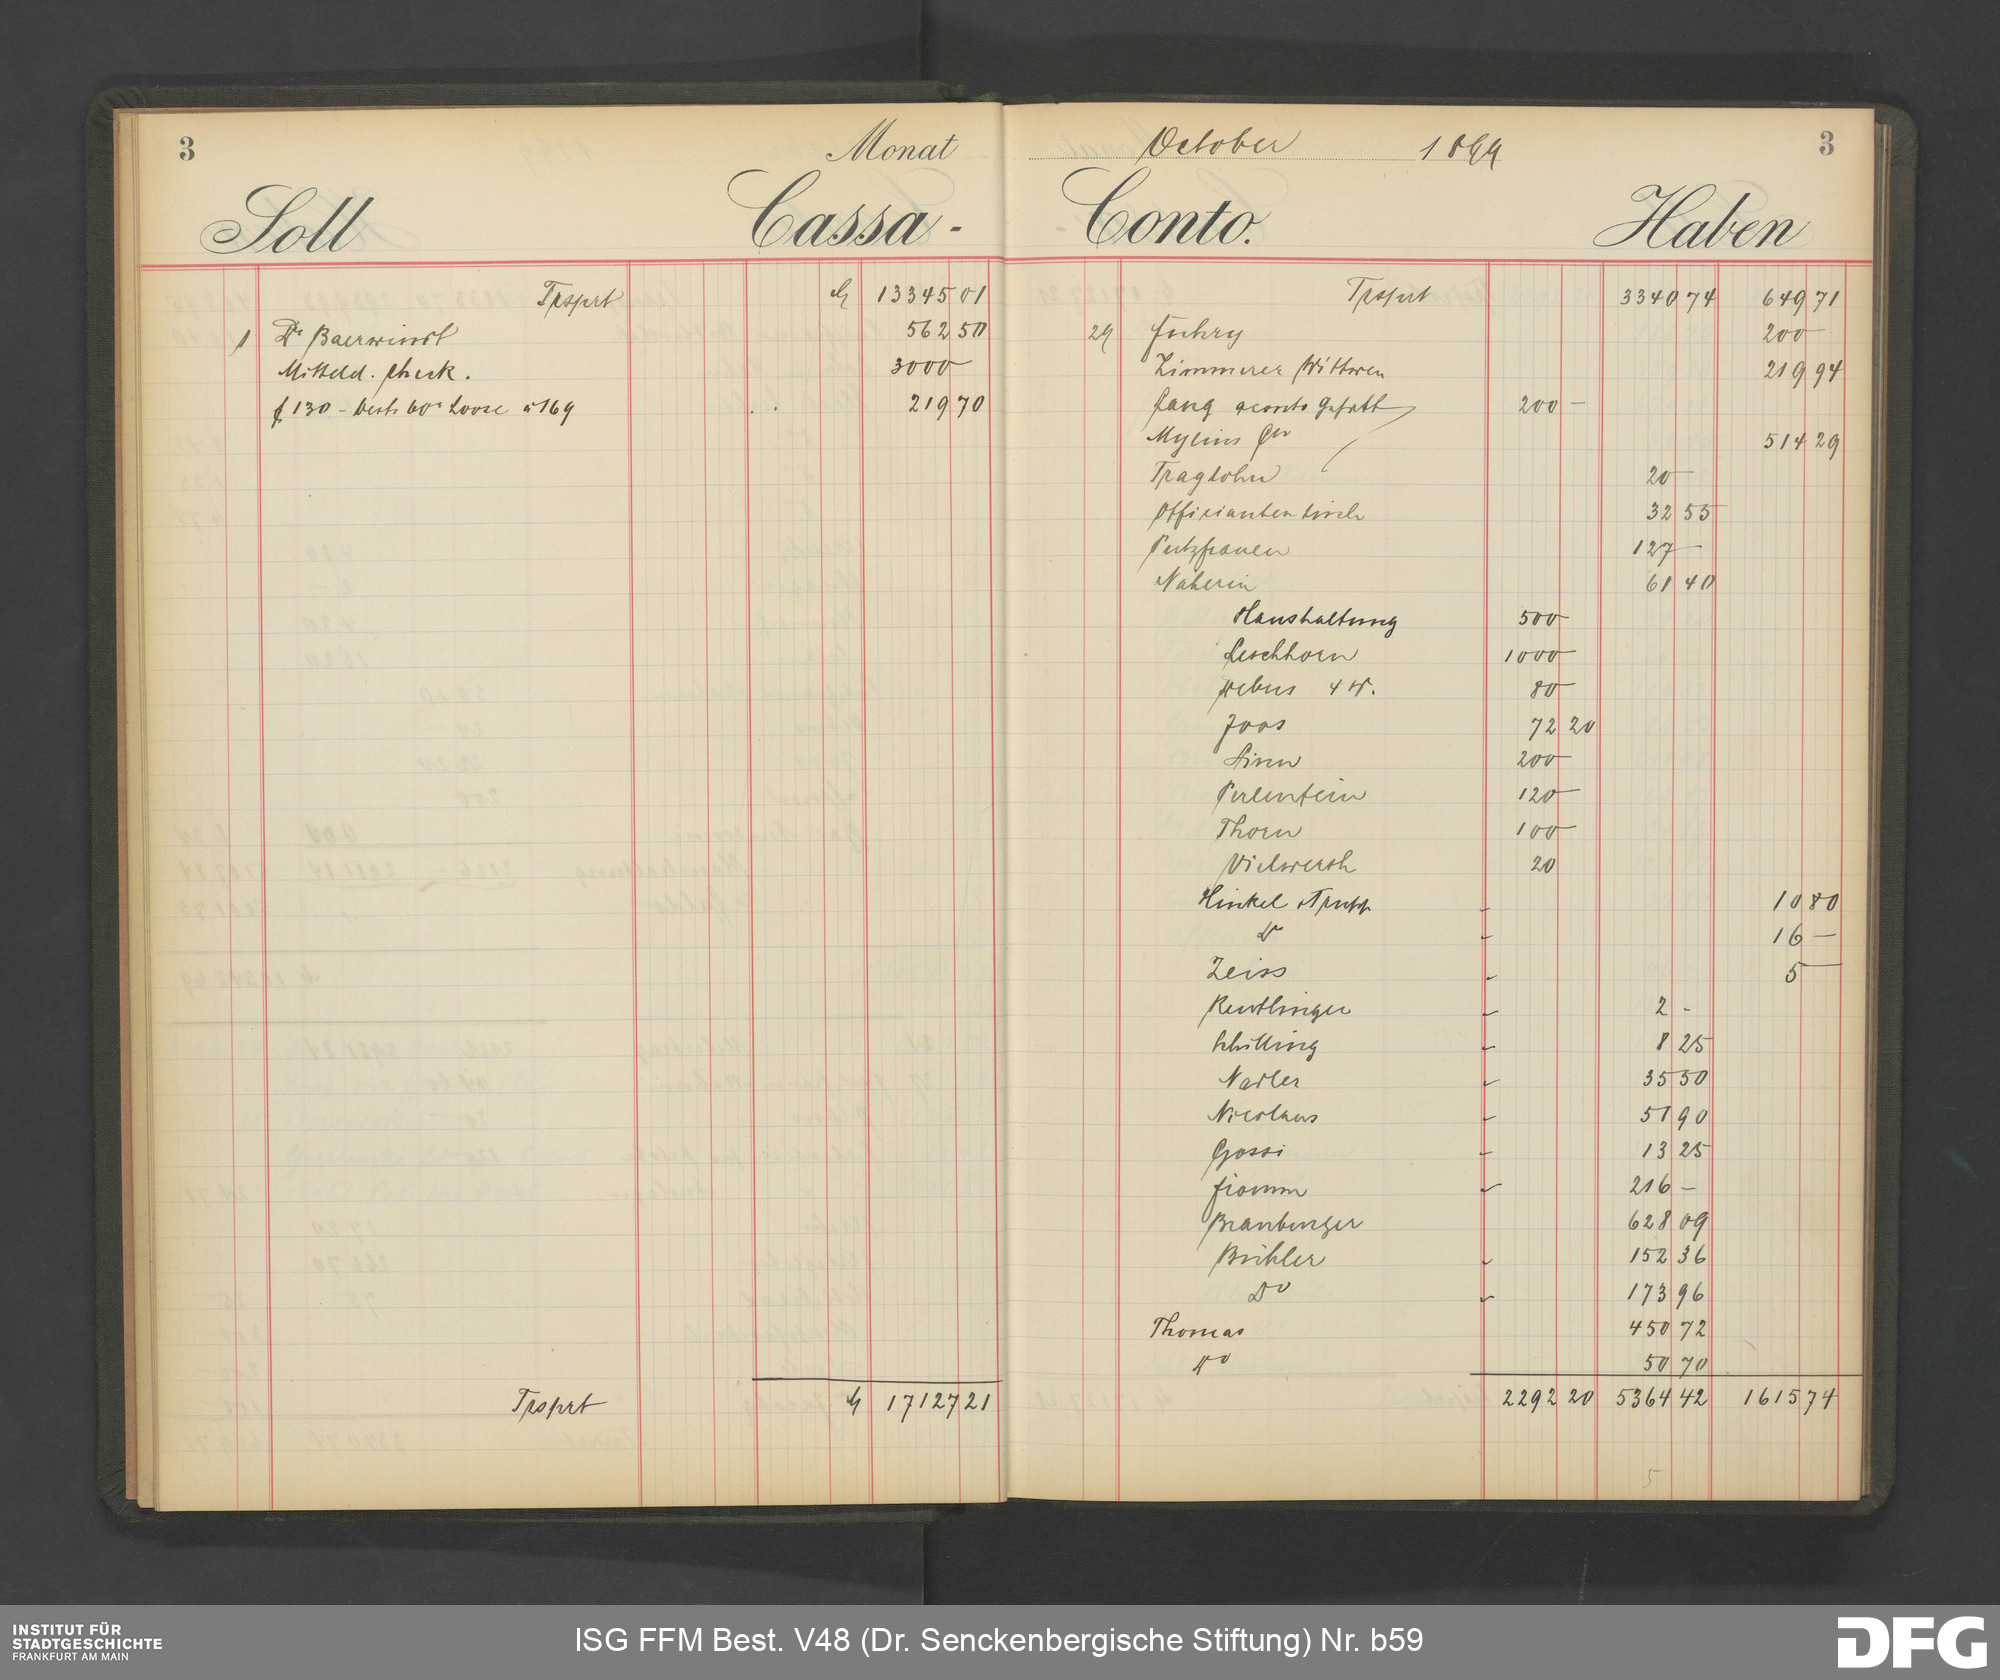 3 Monat
Soll Cassa-
Trsprt M 13345 01
1 Dr Baerwindt 562 50
Mitteld. Check. 3000 —
f 130 – Oestr 60r Loose a 169 219 70
Trsprt M 17127 21
October 1899 3
Conto. Haben
Trsprt 3340 74 649 71
29 Fuhry 200 —
Zimmerer Wittwen 219 94
Lang aconto Gehalt 200 —
Mylius 514 29
Traglohn 20 —
Officianten tisch 32 55
Putzfrauen 127 —
Näherin 61 40
Haushaltung 500 —
Leschhorn 1000 —
Debus 80 —
Joos 72 20
Sinn 200 —
Perlenfein 120 —
Thorn 100 —
Vielwerth 20
Hinkel & Trupp 10 80
Do 16 —
Zeiss 5 —
Reutlinger 2 -
Schilling 8 25
Nadler 35 50
Nicolaus 51 90
Gossi 13 25
Fromm 216 —
Braunberger 628 09
Bühler 152 36
Do 173 96
Thomas 450 72
Do 50 70
2292 20 5364 42 1615 74
5
INSTITUT FÜR
STADTGESCHICHTE
FRANKFURT AM MAIN
ISG FFM Best. V48 (Dr. Senckenbergische Stiftung) Nr. b59
DFG